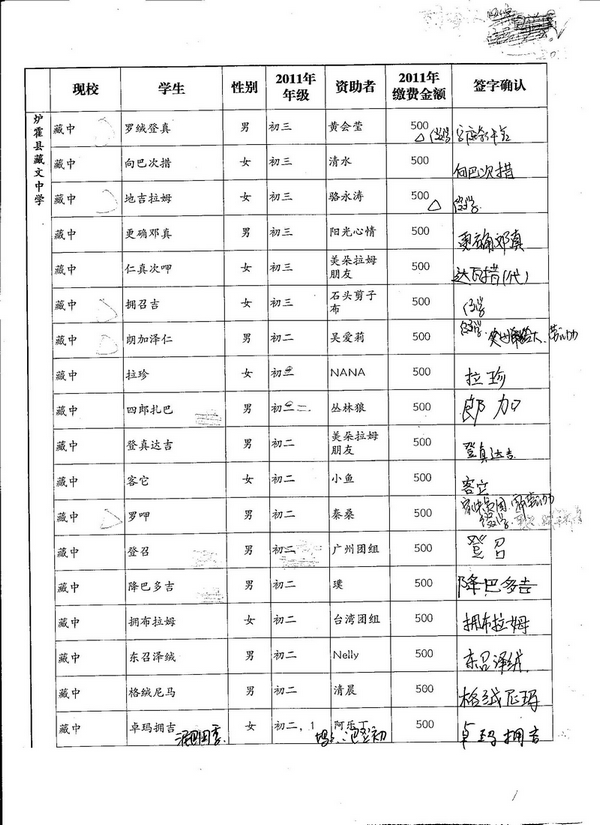 现校 学生 性别 2011年年级 资助者 2011年缴费金额 签字确认
炉霍县藏文中学
藏中 罗绒登真 男 初三 黄会莹 500
藏中 向巴次措 女 初三 清水 500 向巴次措
藏中 地吉拉姆 女 初三 骆永涛 500
藏中 更确邓真 男 初三 阳光心情 500 更确邓真
藏中 仁真次呷 女 初三 美朵拉姆朋友 500 达瓦措(代)
藏中 拥召吉 女 初三 石头剪子布 500
藏中 朗加泽仁 男 初二 吴爱莉 500
藏中 拉珍 女 初 NANA 500 拉珍
藏中 四郎扎巴 男 初二 丛林狼 500 郎加
藏中 登真达吉 男 初二 美朵拉姆朋友 500 登真达吉
藏中 客它 女 初二 小鱼 500 客它
藏中 罗呷 男 初二 秦桑 500
藏中 登召 男 初二 广州团组 500 登召
藏中 降巴多吉 男 初二 璞 500 降巴多吉
藏中 拥布拉姆 女 初二 台湾团组 500 拥布拉姆
藏中 东召泽绒 男 初二 Nelly 500 东召泽绒
藏中 格绒尼马 男 初二 清晨 500 格绒尼玛
藏中 卓玛拥吉 女 初二，1 阿乐丁 500 卓玛拥吉
1